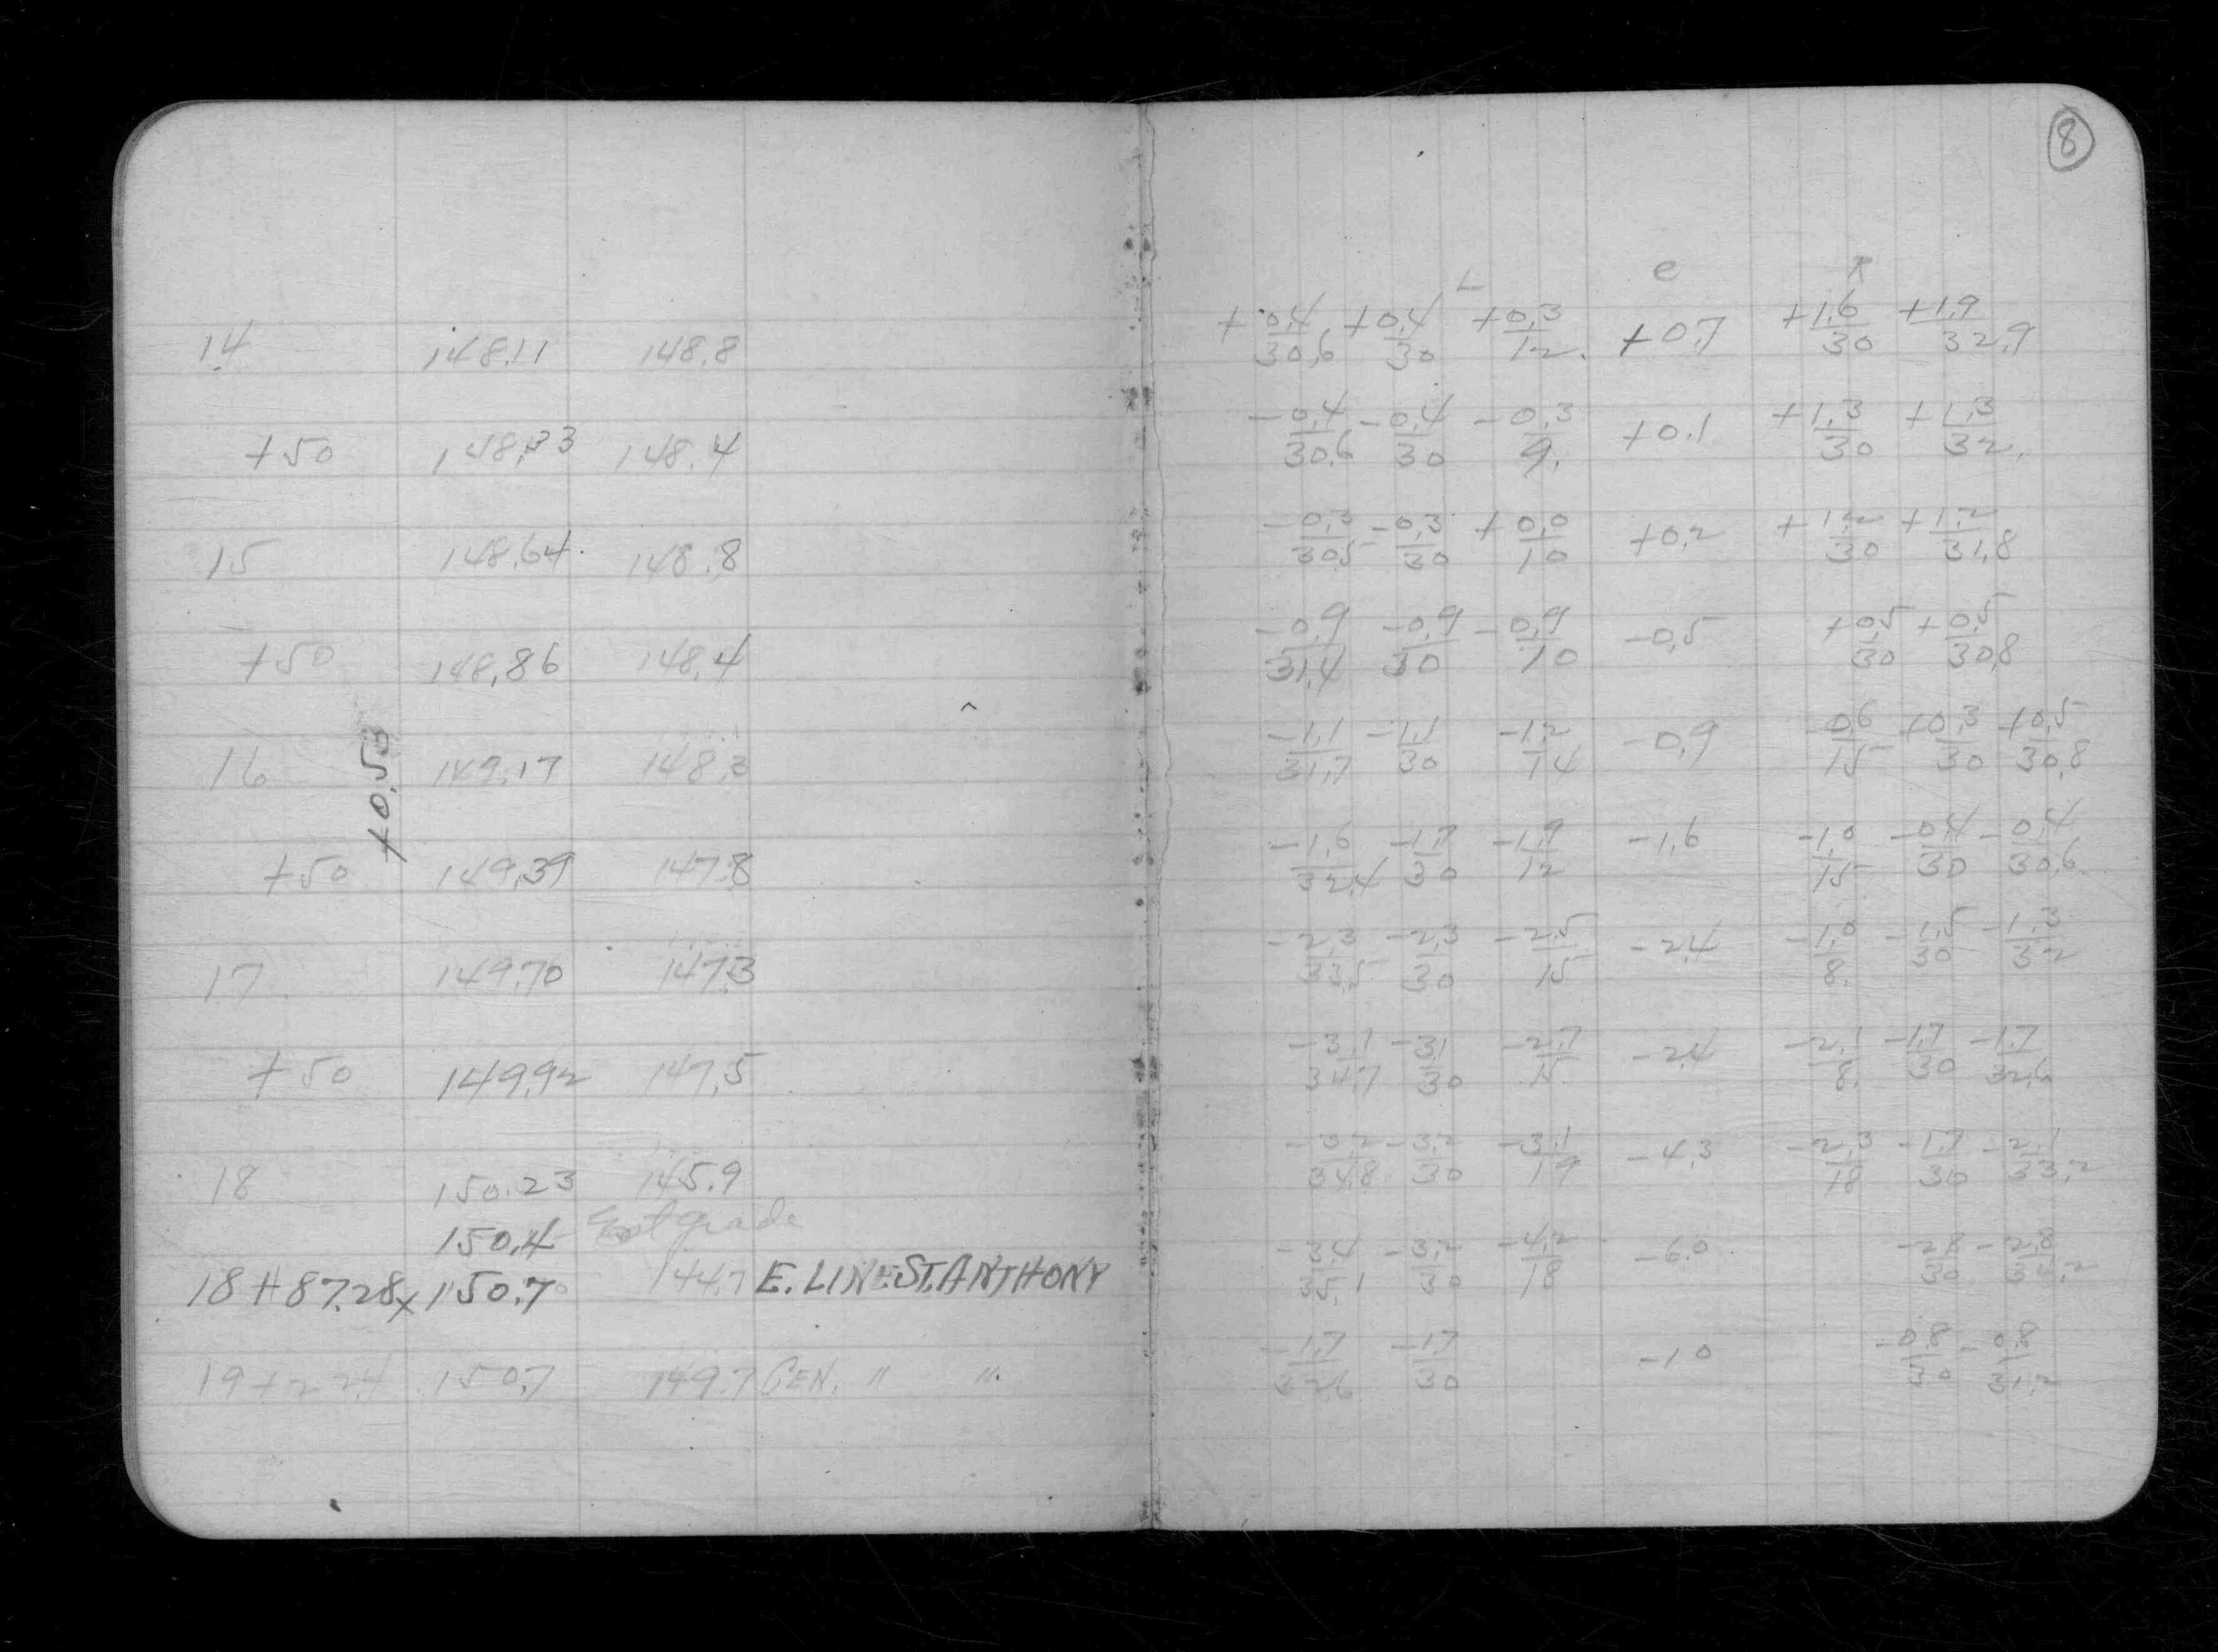 8
L e R
14 148.11 148.8 +0.4/30.6 +0.4/30 +0.3/12. +0.7 +1.6/30 +1.9/32.9
+50 148.33 148.4 -0.4/30.6 -0.4/30 -0.3/9. +0.1 +1.3/30 +1.3/32.
15 148.64 148.8 -0.3/30.5 -0.3/30 +0.0/10 +0.2 +1.2/30 +1.2/31.8
+50 148.86 148.4 -0.9/31.4 -0.9/30 -0.9/10 -0.5 +0.5/30 +0.5/30.8
+0.53
16 149.17 148.3 -1.1/31.7 -1.1/30 -1.2/14 -0.9 -0.6/15 +0.3/30 +0.5/30.8
+50 149.39 147.8 -1.6/32.4 -1.7/30 -1.9/12 -1.6 -1.0/15 -0.4/30 -0.4/30.6
17 149.70 147.3 -2.3/33.5 -2.3/30 -2.5/15 -2.4 -1.0/8. -1.5/30 -1.3/32
+50 149.92 147.5 -3.1/34.7 -3.1/30 -2.7/15 -2.4 -2.1/8. -1.7/30 -1.7/32.6
18 150.23 145.9 -3.2/34.8 -3.2/30 -3.1/19 -4.3 -2.3/18 -1.7/30 -2.1/33.2
150.4 grade
18+87.28x 150.7 144.7 E. LINE ST. ANTHONY -3.4/35.1 -3.2/30 -4.2/18 -6.0 -2.8/30 -2.8/34.2
19+22.4 150.7 149.7 CEN. " ". -1.7/32.6 -1.7/30 -1.0 -0.8/30 -0.8/31.2